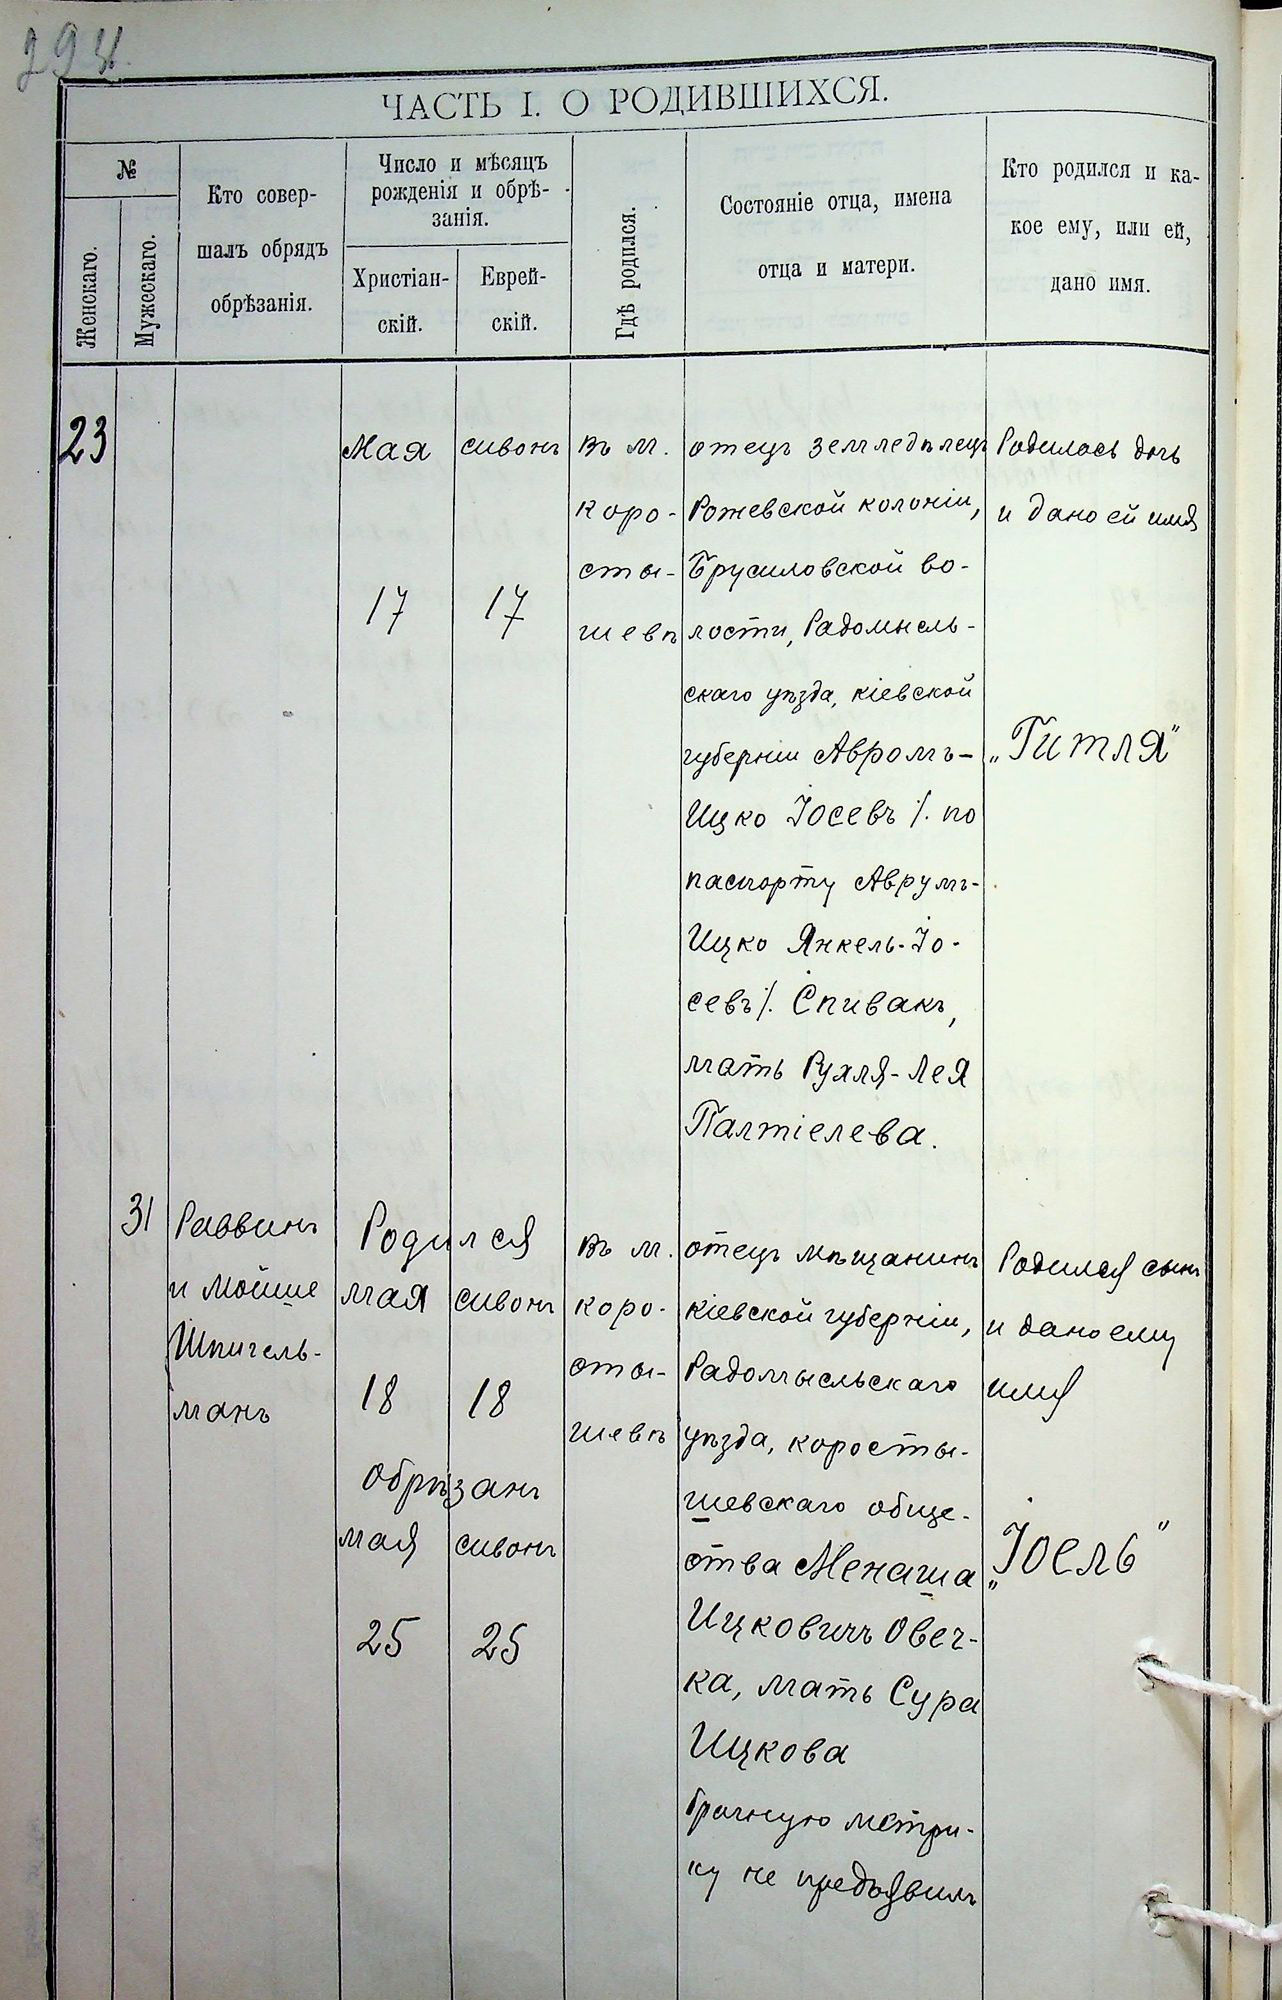 294.
ЧАСТЬ I. О РОДИВШИХСЯ.
№
Женскаго.
Мужескаго.
Кто совер-
шалъ обрядъ
обрѣзанія.
Число и мѣсяцъ
рожденія и обрѣ-
занія.
Христіан-
скій.
Еврей-
скій.
Гдѣ родился.
Состояніе отца, имена
отца и матери.
Кто родился и ка-
кое ему, или ей,
дано имя.
23
Мая
17
сивонъ
17
въ м.
Коро-
сты-
шевѣ
отецъ земледѣлецъ
Рожевской колоніи,
Брусиловской во-
лости, Радомысль-
скаго уѣзда, кіевской
губерніи Авромъ-
Ицко Іосевъ /. по
паспорту Аврумъ-
Ицко Янкель-Іо-
севъ/. Спивакъ,
мать Рухля-Лея
Палтіелева.
Родилась дочь
и дано ей имя
„Гитля"
31
Раввинъ
и Мойше
Шпигель-
манъ
Родился
мая сивонъ
18 18
обрѣзанъ
мая сивонъ
25 25
въ м.
коро-
сты-
шевѣ
отецъ мѣщанинъ
кіевской губерніи,
Радомысльскаго
уѣзда, коросты-
шевскаго обще-
ства Менаша
Ицковичъ Овеч-
ка, мать Сура
Ицкова
брачную метри-
ку не предъявилъ
Родился сынъ
и дано ему
имя
„Іоель"